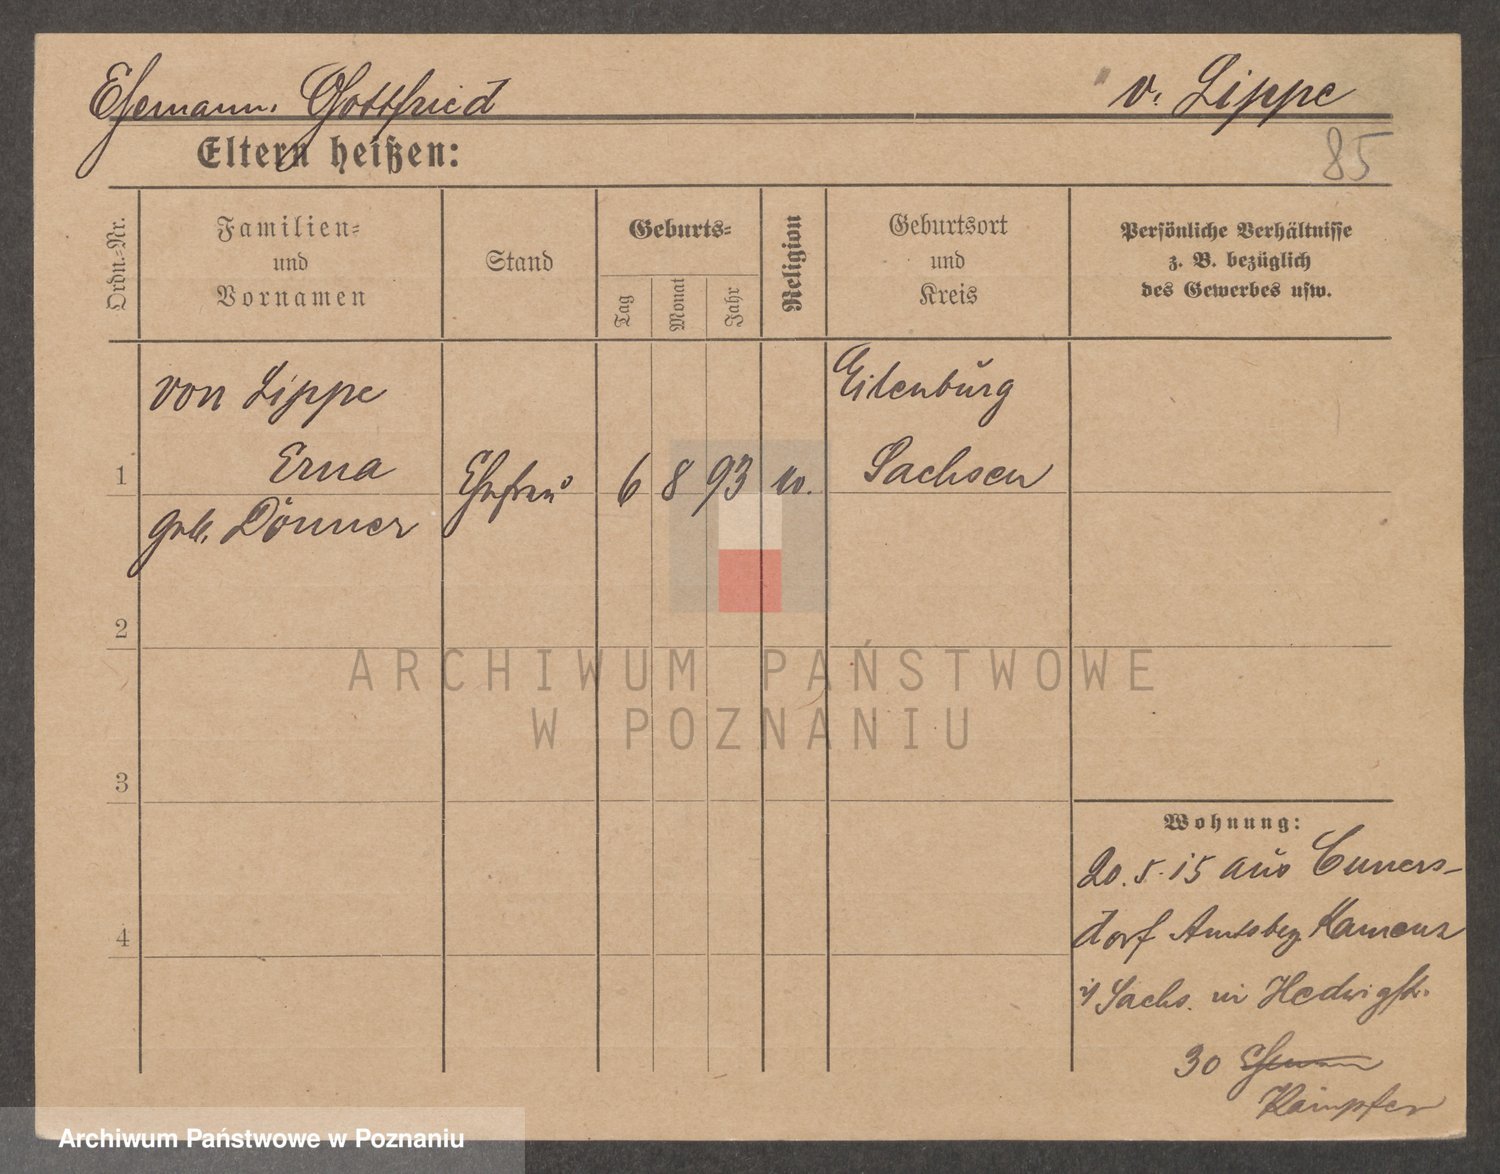 Ehemann. Gottfried v. Lippe
Eltern heißen:
85
Ordn.-Nr.
Familien-
und
Vornamen
Stand
Geburts-
Tag
Monat
Jahr
Religion
Geburtsort
und
Kreis
Persönliche Verhältnisse
z. B. bezüglich
des Gewerbes usw.
von Lippe
Erna
geb. Dönner
1
Ehefrau
6 8 93
Eilenburg
Sachsen
2
ARCHIWUM PAŃSTWOWE
W POZNANIU
3
Wohnung:
20. 5. 15 aus Cuners-
dorf Amtsbez Kamenz
i/ Sachs. in Hedwigstr.
30
Kämpfer
4
Archiwum Państwowe w Poznaniu